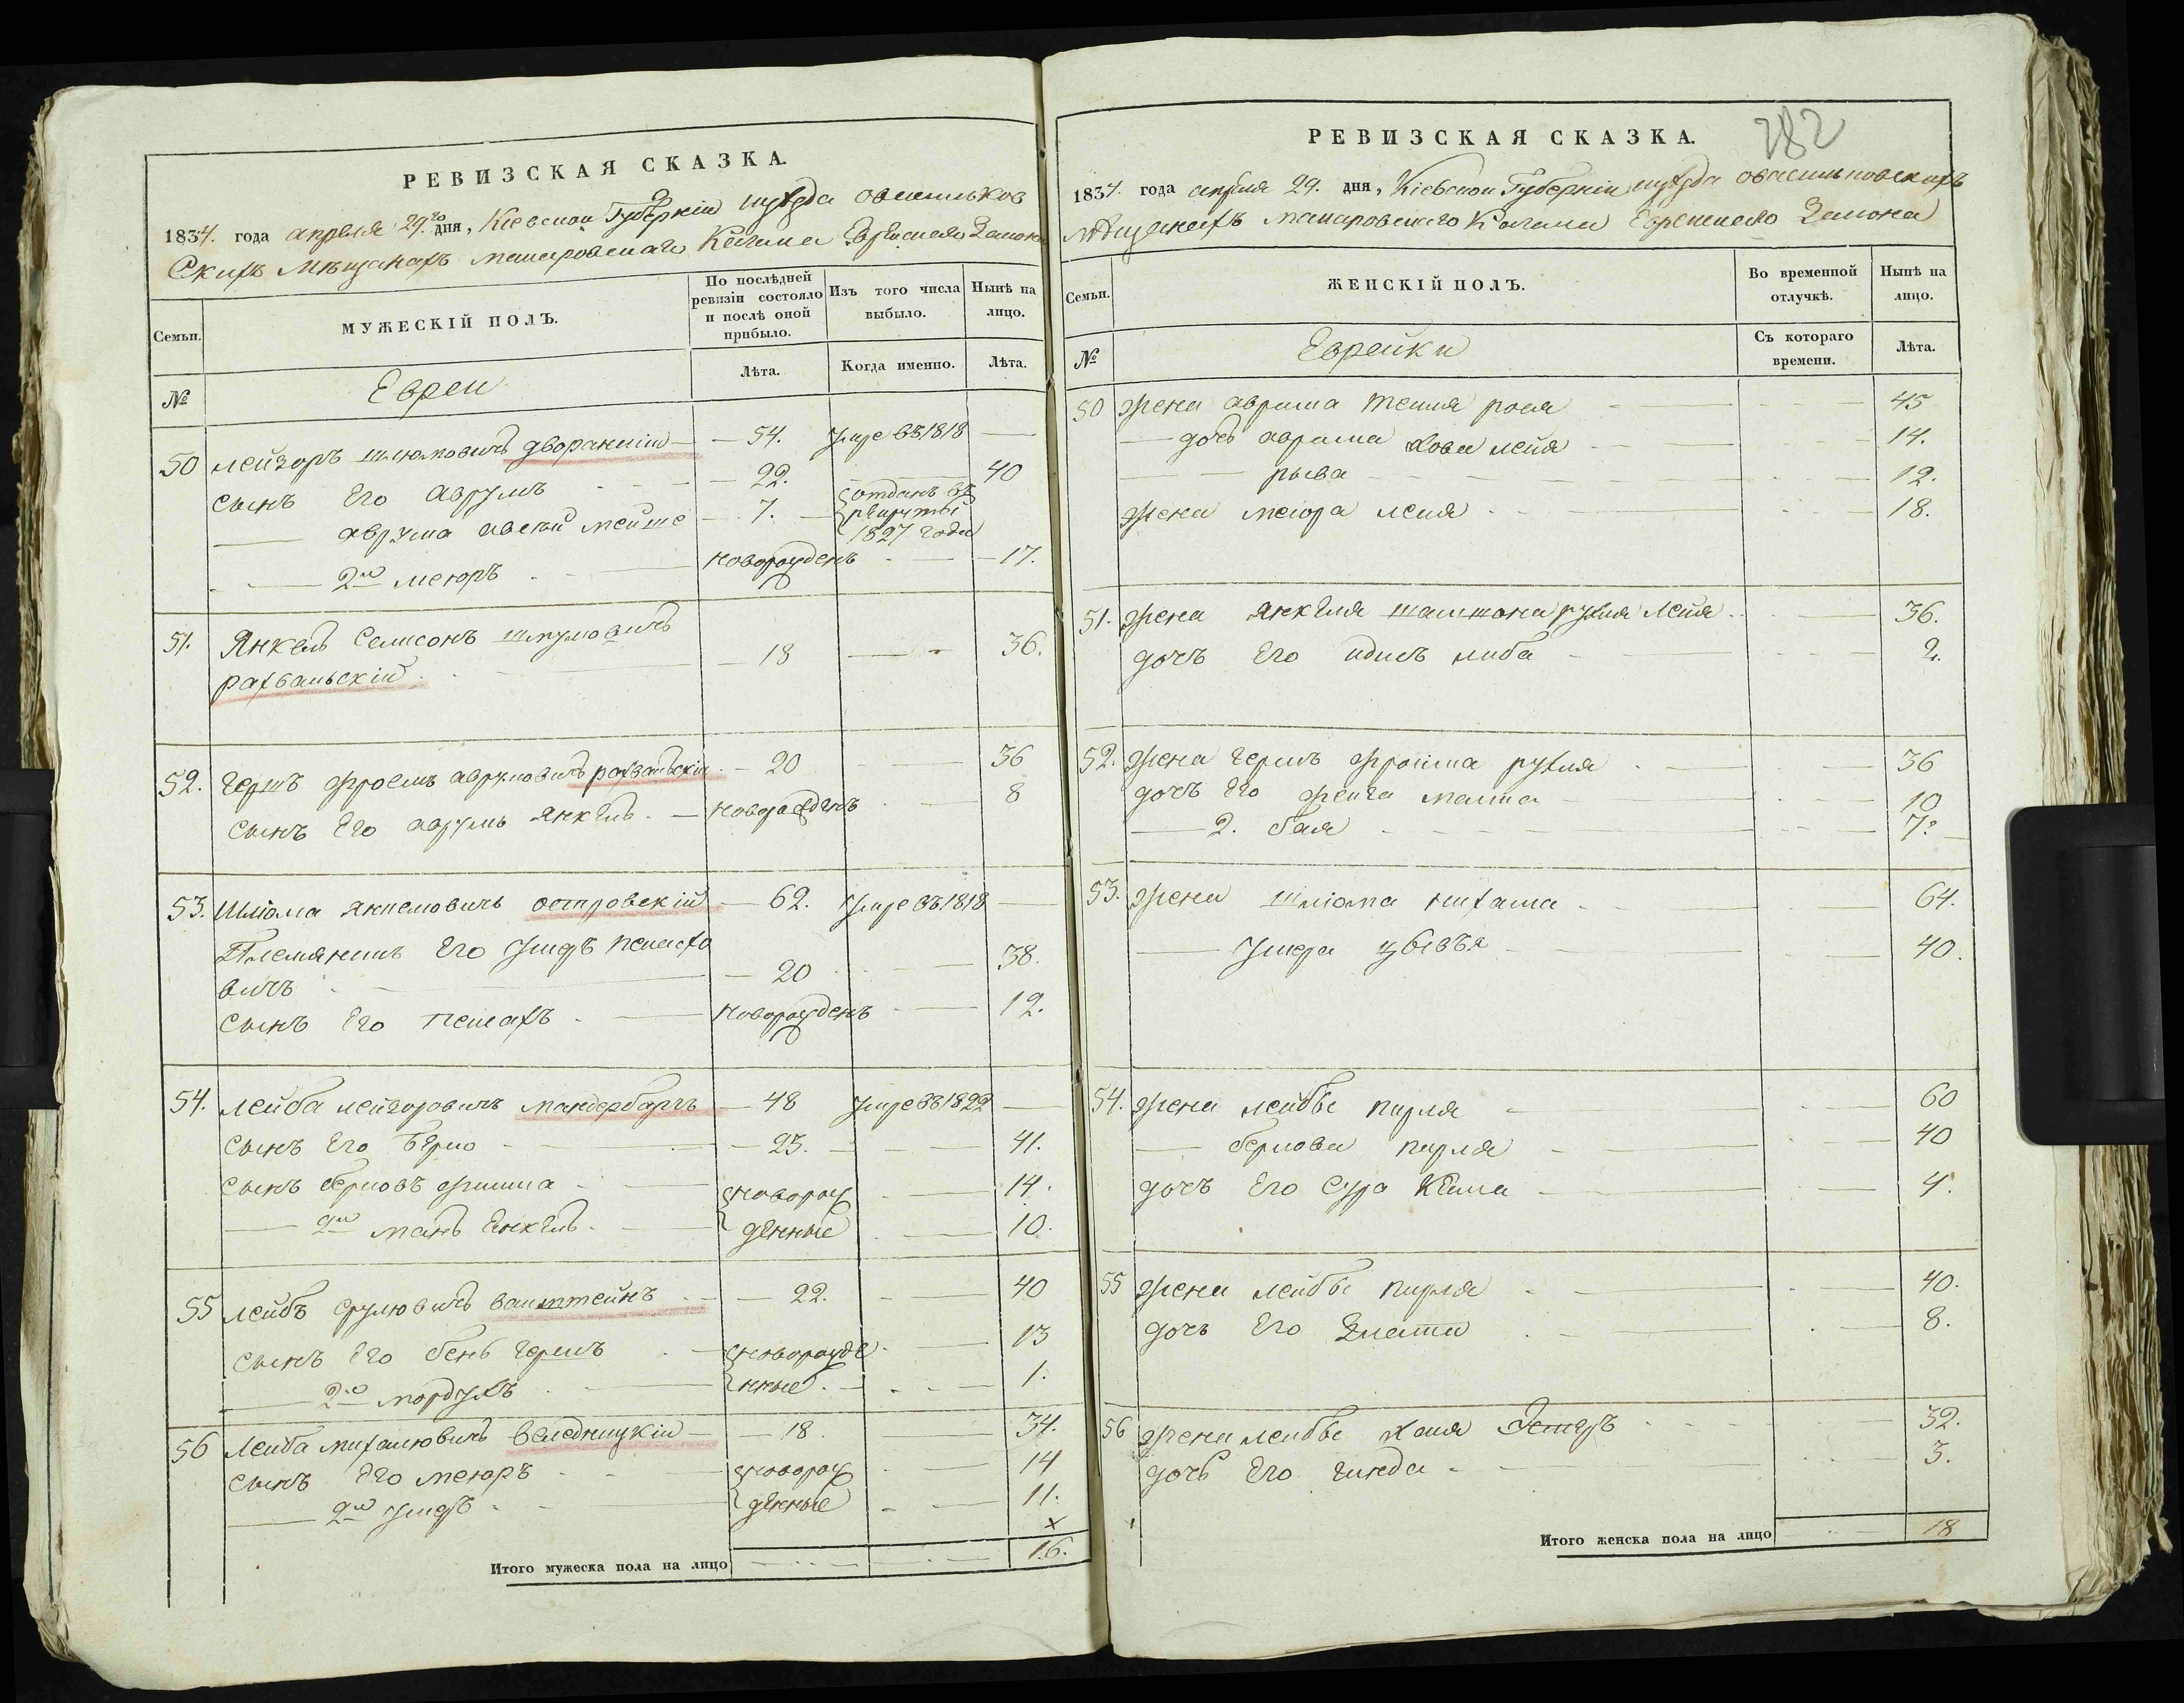 РЕВИЗСКАЯ СКАЗКА.
1834. года апреля 29.го дня, Кіевской Губерніи уѣзда овасильков
Скихъ Мѣщанахъ макаровскаго Кагала Еврейскаго Закона
Семьи.
МУЖЕСКІЙ ПОЛЪ.
По послѣдней ревизіи состояло и послѣ оной прибыло.
Изъ того числа выбыло.
Нынѣ на лицо.
№
Евреи
Лѣта.
Когда именно.
Лѣта.
50 лейзоръ шлюмовичъ — 54. умре въ 1818 —
сынъ его аврумъ — 22. — 40
аврума мейше — 7. отданъ въ
рекруты
1827 года
2й меюръ новорожденъ — 17.
51. Янкель Самсонъ шмулевичъ — 18 — 36.
рахвальскій
52. Гершъ фроимъ аврумовичъ рахвальскій — 20 — 36
сынъ его аврумъ янкель — новорожденъ — 8
53. Шлюма янкелевичъ островскій — 62. умре въ 1818 —
Племянникъ его ушеръ пейсахо
вичъ — 20 — 38.
сынъ его пейсахъ новорожденъ — 12.
54. лейба лейзоровичъ — 48 умре въ 1822 —
сынъ его берко — 23. — 41.
сынъ берковъ новорож — 14.
2й янкель денные — 10.
55 лейбъ срулювичъ ванштейнъ — 22. — 40
сынъ его бень гершъ новорожде — 13
2й мордухъ нные — 1.
56 Лейба михалювичъ веледницкій — 18. — 34.
сынъ его меюръ новорож — 14
2й ушеръ денные — 11.
Итого мужеска пола на лицо 16.
282
РЕВИЗСКАЯ СКАЗКА.
1834. года апреля 29. дня, Кіевской Губерніи уѣзда овасильковскихъ
мѣщанахъ макаровскаго Кагала Еврейскаго Закона
Семьи.
ЖЕНСКІЙ ПОЛЪ.
Во временной отлучкѣ.
Нынѣ на лицо.
№
Еврейки
Съ котораго времени.
Лѣта.
50 жена аврума — 45
дочь аврума хова лейя — 14.
рыва — 12.
жена меюра лея — 18.
51. жена янкеля рухля лейя — 36.
дочъ его либа — 2.
52. жена гершъ фроима рухля — 36
дочъ его фейга малка — 10
2. бая — 7.
53. жена шлюма — 64.
ушера цывъя — 40.
54. жена лейбы пирля — 60
беркова пирля — 40
дочъ его Сура — 4.
55 жена лейбы пирля — 40.
дочъ его злата — 8.
56 жена лейбы хая Эстеръ — 32.
дочъ его гинда — 3.
Итого женска пола на лицо 18